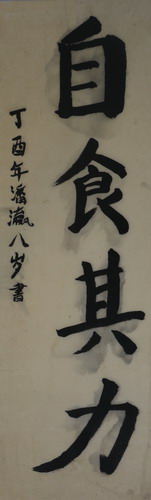 自食其力
丁酉年潘瀛八岁書